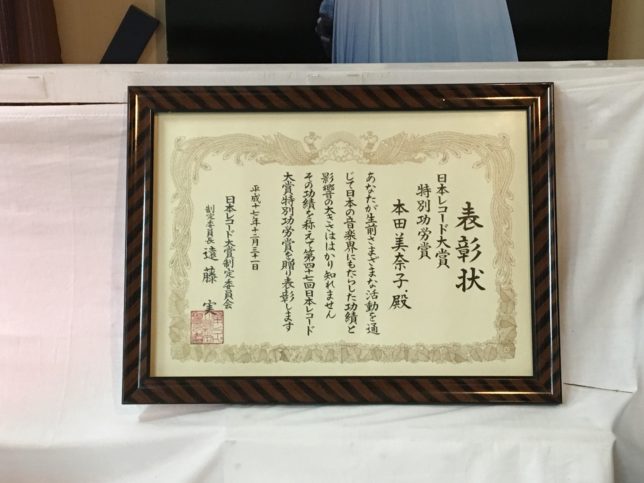 表彰状
日本レコード大賞
特別功労賞
本田美奈子.殿
あなたが生前さまざまな活動を通
じて日本の音楽界にもたらした功績と
影響の大きさははかり知れません
その功績を称えて第四十七回日本レコード
大賞特別功労賞を贈り表彰します
平成十七年十二月三十一日
日本レコード大賞制定委員会
制定委員長 遠藤 実